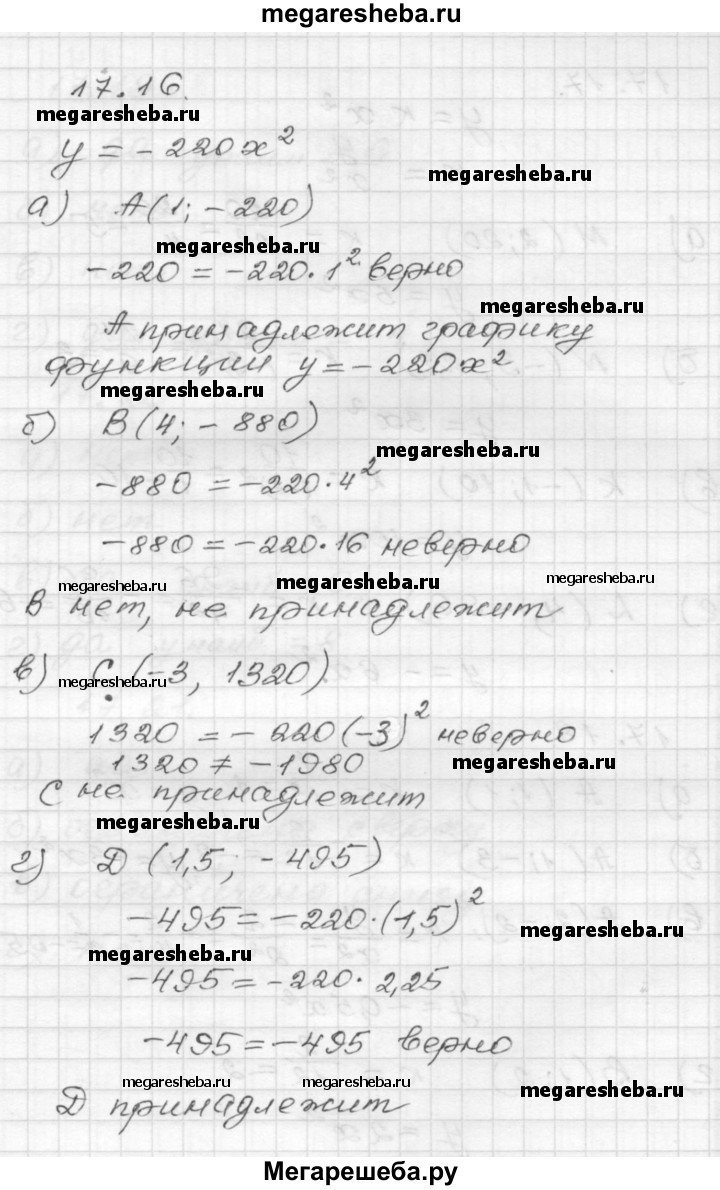 megaresheba.ru
17.16.
megaresheba.ru
y = -220x²
megaresheba.ru
а) A(1; -220)
megaresheba.ru
-220 = -220·1² верно
megaresheba.ru
A принадлежит графику
функции y = -220x²
megaresheba.ru
б) B(4; -880)
megaresheba.ru
-880 = -220·4²
-880 = -220·16 неверно
megaresheba.ru megaresheba.ru megaresheba.ru
B нет, не принадлежит
в) C(-3, 1320)
megaresheba.ru
1320 = -220(-3)² неверно
1320 ≠ -1980
megaresheba.ru
C не принадлежит
megaresheba.ru
г) D (1,5; -495)
-495 = -220·(1,5)²
megaresheba.ru
megaresheba.ru
-495 = -220·2,25
-495 = -495 верно
megaresheba.ru megaresheba.ru megaresheba.ru
D принадлежит
Мегарешеба.ру